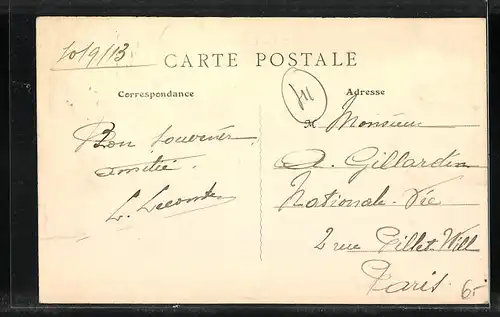 10/9/13
CARTE POSTALE
Correspondance
Adresse
Bon souvenir
amitié
L. Lecomte
M Monsieur
A. Gillardin
Nationale-Vie
2 rue Pillet-Will
Paris.
6.-